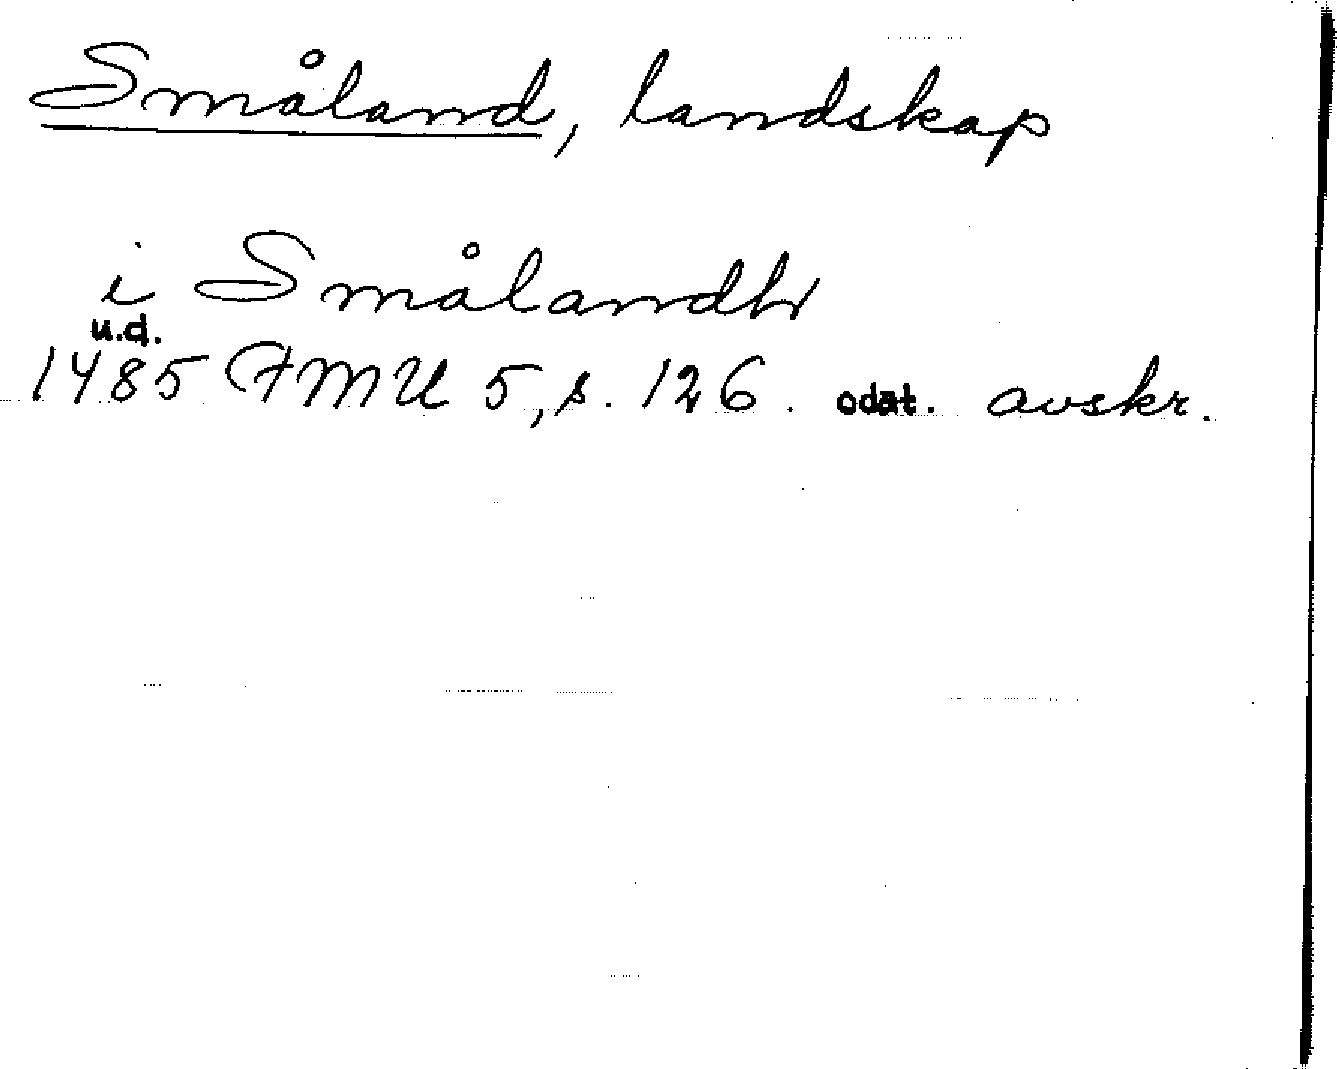 Småland, landskap
i Smålandh
u.d.
1485 FMU 5, s. 126. odat. avskr.